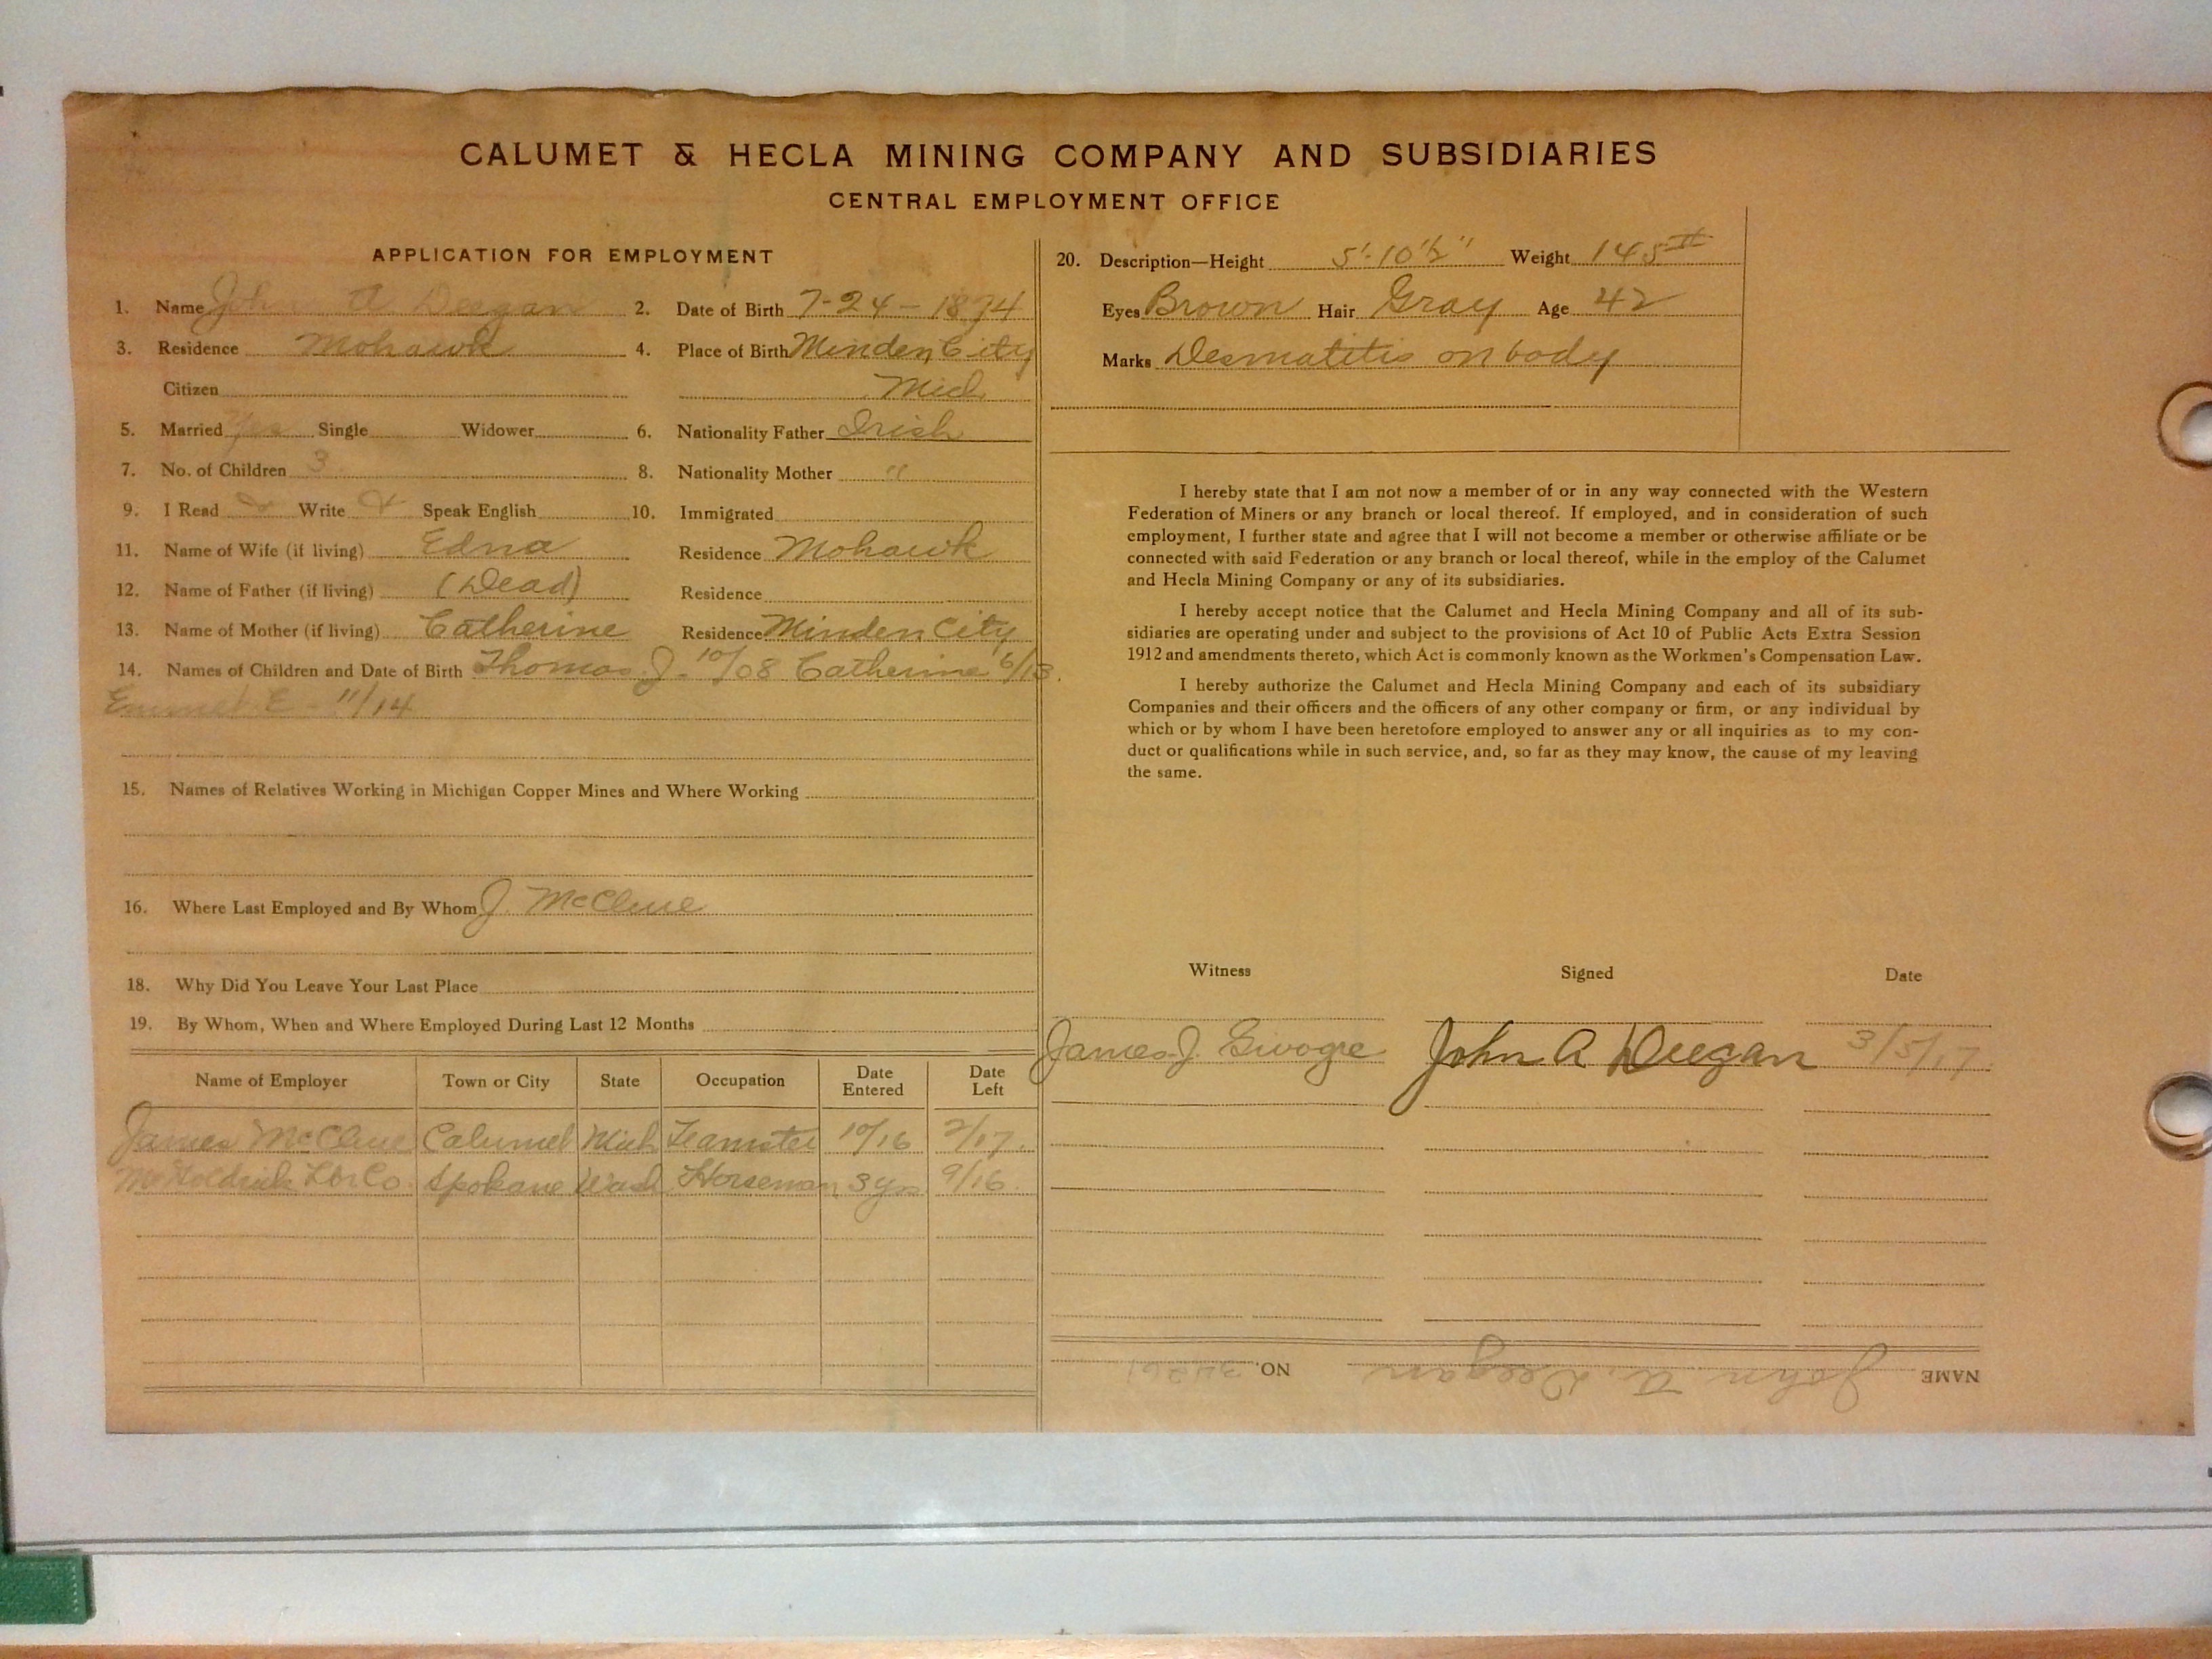 CALUMET & HECLA MINING COMPANY AND SUBSIDIARIES
CENTRAL EMPLOYMENT OFFICE
APPLICATION FOR EMPLOYMENT
1. Name John A Deegan 2. Date of Birth 7-24-1874
3. Residence Mohawk 4. Place of Birth Minden City
Citizen Mich
5. Married Yes Single Widower 6. Nationality Father Irish
7. No. of Children 3 8. Nationality Mother "
9. I Read Write Speak English 10. Immigrated
11. Name of Wife (if living) Edna Residence Mohawk
12. Name of Father (if living) (Dead) Residence
13. Name of Mother (if living) Catherine Residence Minden City
14. Names of Children and Date of Birth Thomas J. 10/08 Catherine 6/13.
Emmet E - 11/14
15. Names of Relatives Working in Michigan Copper Mines and Where Working
16. Where Last Employed and By Whom J. McClure
18. Why Did You Leave Your Last Place
19. By Whom, When and Where Employed During Last 12 Months
Name of Employer Town or City State Occupation Date Entered Date Left
James McClure Calumet Mich Teamster 10/16 2/17.
McGoldrick Lbr Co. Spokane Wash Horseman 3 yrs 9/16.
20. Description—Height 5'-10½" Weight 145#
Eyes Brown Hair Gray Age 42
Marks Desmatitis on body
I hereby state that I am not now a member of or in any way connected with the Western
Federation of Miners or any branch or local thereof. If employed, and in consideration of such
employment, I further state and agree that I will not become a member or otherwise affiliate or be
connected with said Federation or any branch or local thereof, while in the employ of the Calumet
and Hecla Mining Company or any of its subsidiaries.
I hereby accept notice that the Calumet and Hecla Mining Company and all of its sub-
sidiaries are operating under and subject to the provisions of Act 10 of Public Acts Extra Session
1912 and amendments thereto, which Act is commonly known as the Workmen's Compensation Law.
I hereby authorize the Calumet and Hecla Mining Company and each of its subsidiary
Companies and their officers and the officers of any other company or firm, or any individual by
which or by whom I have been heretofore employed to answer any or all inquiries as to my con-
duct or qualifications while in such service, and, so far as they may know, the cause of my leaving
the same.
Witness Signed Date
James J. John A Deegan 3/5/17
NAME John A. Deegan NO.